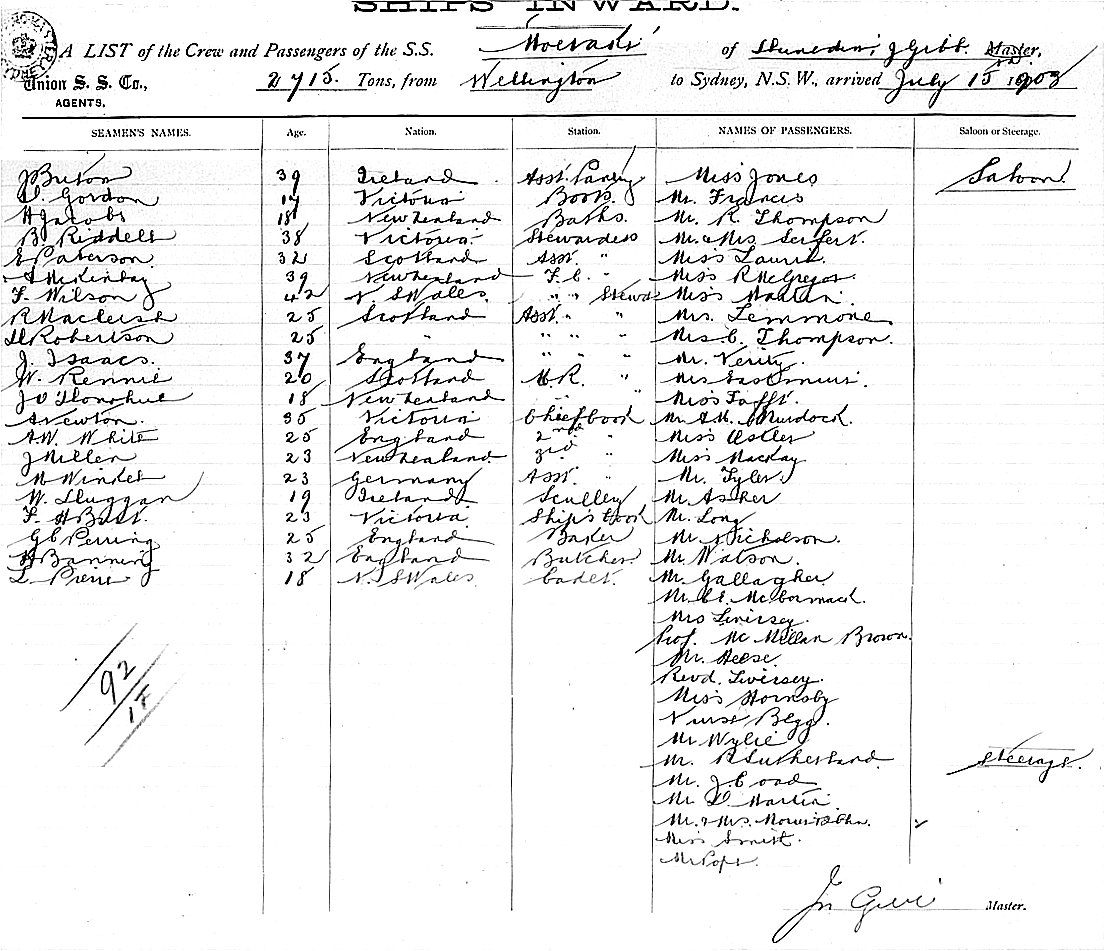 SHIPS INWARD.
A LIST of the Crew and Passengers of the S.S. Moeraki of Dunedin, J Gibb Master,
Union S. S. Co., 2715. Tons, from Wellington to Sydney, N.S.W., arrived July 15 1903
AGENTS.
SEAMEN'S NAMES. Age. Nation. Station. NAMES OF PASSENGERS. Saloon or Steerage.
J 39 Ireland. Asst. Pantry Miss Jones Saloon.
D. Gordon 17 Victoria Boots. Mr. Francis
H Jacobs 18 New Zealand Baths. Mr. R. Thompson
B. Riddell 38 Victoria. Stewardess Mr. & Mrs. Seifert.
E Paterson. 32 Scotland Asst. " Miss Laurie.
McKinlay 39 New Zealand F.C. " Miss R McGregor.
F. Wilson 42 N. S Wales. " " Stewds Miss Martin.
R Macleish 25 Scotland Asst. " " Mrs. Lemmone
D Robertson 25 " " " " Mrs. C. Thompson.
J. Isaacs. 37 England " " " Mr. Verity.
W. Rennie 20 Scotland M.R. " Mrs
J O'Donohue 18 New Zealand " " Miss
A Newton. 35 Victoria Chief Cook Mr. A.M. Murdock.
A.W. White 25 England 2nd " Miss Astley
J Miller 23 New Zealand. 3rd " Miss Mackay
Winkel 23 Germany Asst. " Mr. Tyler.
W. Duggan 19 Ireland Sculley Mr. Asher
F. A 23 Victoria Ship's Cook Mr. Long
G C Perring 25 England Baker Mr. Nicholson.
H Banning 32 England Butcher. Mr. Watson.
L. Pierre 18 N. S Wales. Cadet. Mr. Gallagher
Mr. C.E. McCormack.
Mrs Livesey.
Prof. McMillan Brown.
Mr. Reese.
Revd. Livesey.
Miss Hornsby
Nurse Begg.
Mr Wylie
Mr. R Sutherland Steerage.
Mr. J. Coad
Mr. D. Martin.
Mr. & Mrs.
Miss Smith.
Mr Pope.
92/18
Jn Gibb Master.